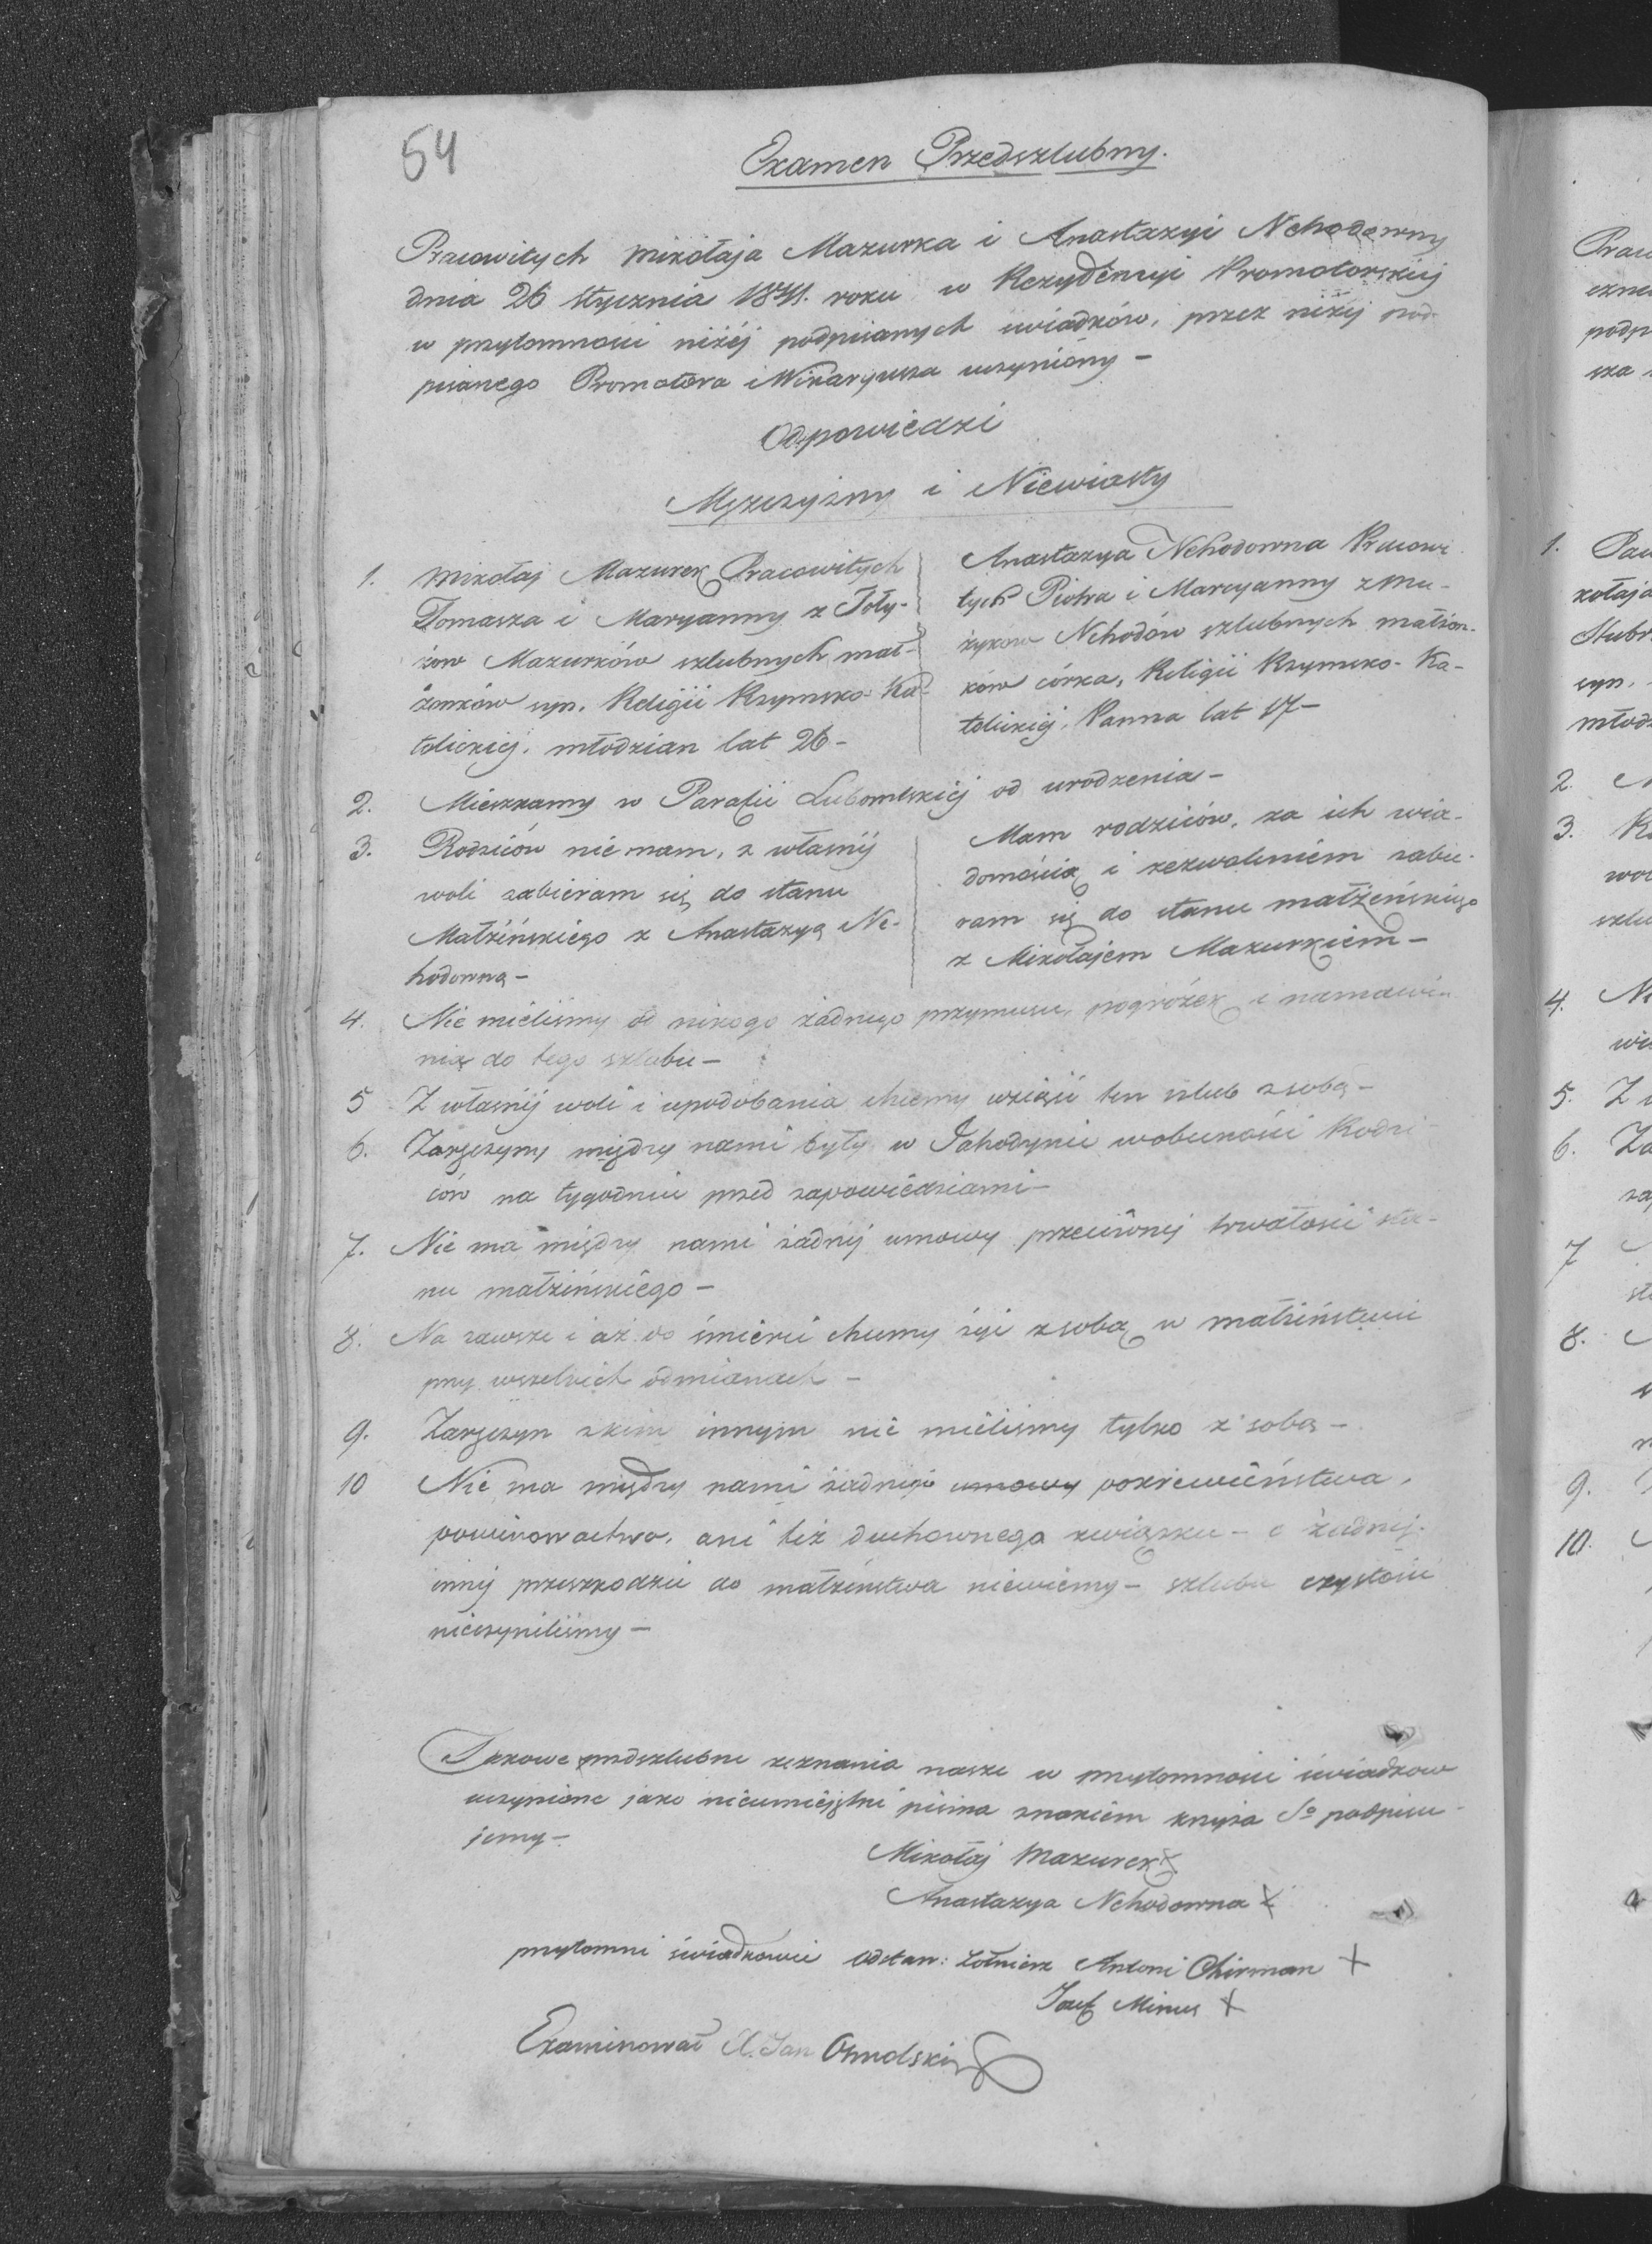 54
Examen Przedszlubny.
Pracowitych Mikołaja Mazurka i Anastazyi Nehodowny
dnia 26 Stycznia 1841. roku w Rezydencyi Promotorskiej
w przytomności niżéj podpisanych świadków, przez niżéj pod-
pisanego Promotora i Wikaryusza uczyniony –
Odpowiedzi
Mężczyzny i Niewiasty
1. Mikołaj Mazurek Pracowitych
Tomasza i Maryanny z Toły-
żow Mazurków szlubnych mał-
żonków syn. Religii Rzymsko-Ka-
tolickiej. młodzian lat 26 –
Anastazya Nehodowna Pracowi
tych Piotra i Maryanny z Mu-
zyków Nehodów szlubnych małżon-
ków córka, Religii Rzymsko-Ka-
tolickiej. Panna lat 17 –
2. Mieszkamy w Parafii Lubomlskiéj od urodzenia –
3. Rodziców nie mam, z własnéj
woli zabieram się do stanu
Małżeńskiego z Anastazyą Ne-
hodowną –
Mam rodziców, za ich wia-
domością i zezwoleniem zabie-
ram się do stanu małżeńskiego
z Mikołajem Mazurkiem –
4. Nie mieliśmy od nikogo żadnego przymusu, pogróżek i namawia-
nia do tego szlubu –
5 Z własnéj woli i upodobania chcemy wziąść ten szlub z sobą –
6. Zaręczyny między nami były w Jahodynie w obecności Rodzi-
ców na tygodniu przed zapowiedziami –
7. Nie ma między nami żadnéj umowy przeciwnej trwałości sta-
nu małżeńskiego –
8. Na zawsze i aż do śmierci chcemy żyć z sobą w małżeństwie
przy wszelkich odmianach –
9. Zaręczyn z kim innym nie mieliśmy tylko z sobą –
10 Nie ma między nami żadnego umowy pokrewieństwa,
powinowactwa, ani też duchownego związku – o żadnej
innej przeszkodzie do małżeństwa niewiemy – szlubu czystości
nieczyniliśmy –
Takowe przedszlubne zeznania nasze w przytomności świadkow
uczynione jako nieumiejętni pisma znakiem krzyża S° podpisu-
jemy –
Mikołaj Mazurek X
Anastazya Nehodowna X
przytomni świadkowie Odstaw: Żołnierz Antoni Chirman X
Józef Minus X
Examinował X. Jan Omolski